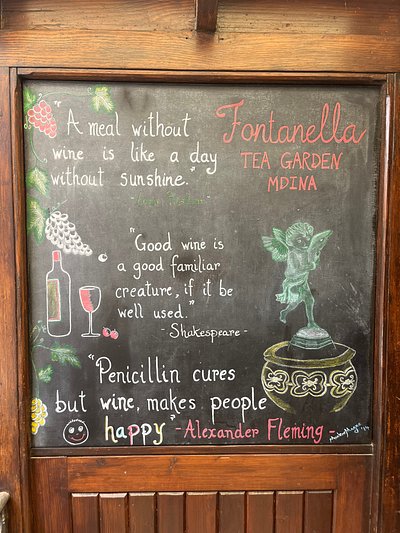 "A meal without
wine is like a day
without sunshine."
Fontanella
TEA GARDEN
MDINA
"Good wine is
a good familiar
creature, if it be
well used."
- Shakespeare -
"Penicillin cures
but wine, makes people
happy" - Alexander Fleming -